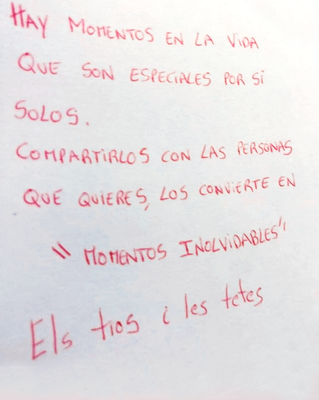 HAY MOMENTOS EN LA VIDA
QUE SON ESPECIALES POR SI
SOLOS.
COMPARTIRLOS CON LAS PERSONAS
QUE QUIERES, LOS CONVIERTE EN
"MOMENTOS INOLVIDABLES"
Els tios i les tetes